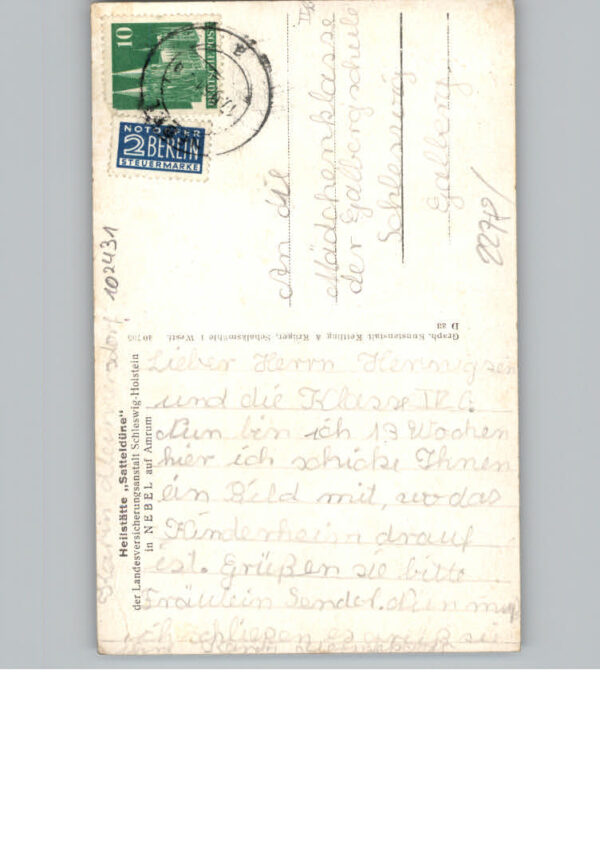 10
DEUTSCHE POST
NOTOPFER
2 BERLIN
STEUERMARKE
An die
Mädchenklasse
der Galbergschule
Schleswig
Galberg
22718/
102431
Graph. Kunstanstalt Ketting & Krüger, Schalksmühle i Westf. 40 705
D 33
Heilstätte „Satteldüne"
der Landesversicherungsanstalt Schleswig-Holstein
in NEBEL auf Amrum
Lieber Herr
und die Klasse
Nun bin ich 13 Wochen
hier ich schicke Ihnen
ein Bild mit, wo das
Kinderheim drauf
ist. Grüßen sie bitte
Fräulein Sendel. Nun muß
ich schließen es grüßt sie
Karin